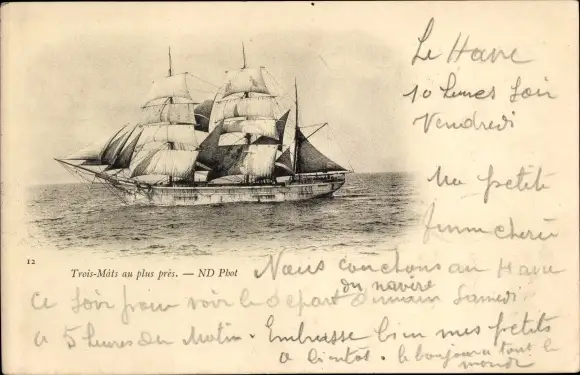 Le Havre
10 heures Soir
Vendredi
Ma petite
femme chérie
12
Trois-Mâts au plus près. — ND Phot
Nous couchons au Havre
ce soir pour voir le départ du navire demain Samedi
a 5 heures du Matin. Embrasse bien mes petits
a bientôt. le bonjour a tout le
monde